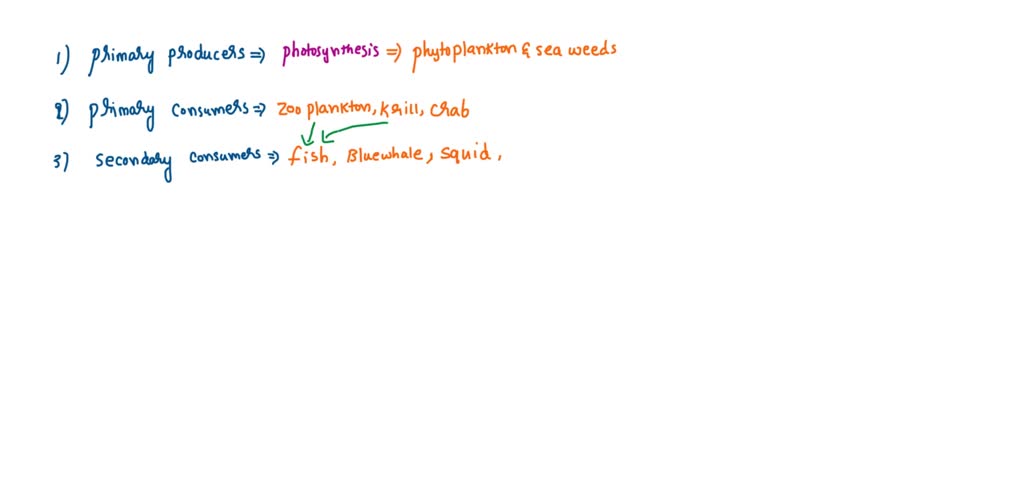 1) primary producers ⇒ photosynthesis ⇒ phytoplankton & sea weeds
2) primary consumers ⇒ Zoo plankton, krill, crab
3) secondary consumers ⇒ fish, Bluewhale, squid,